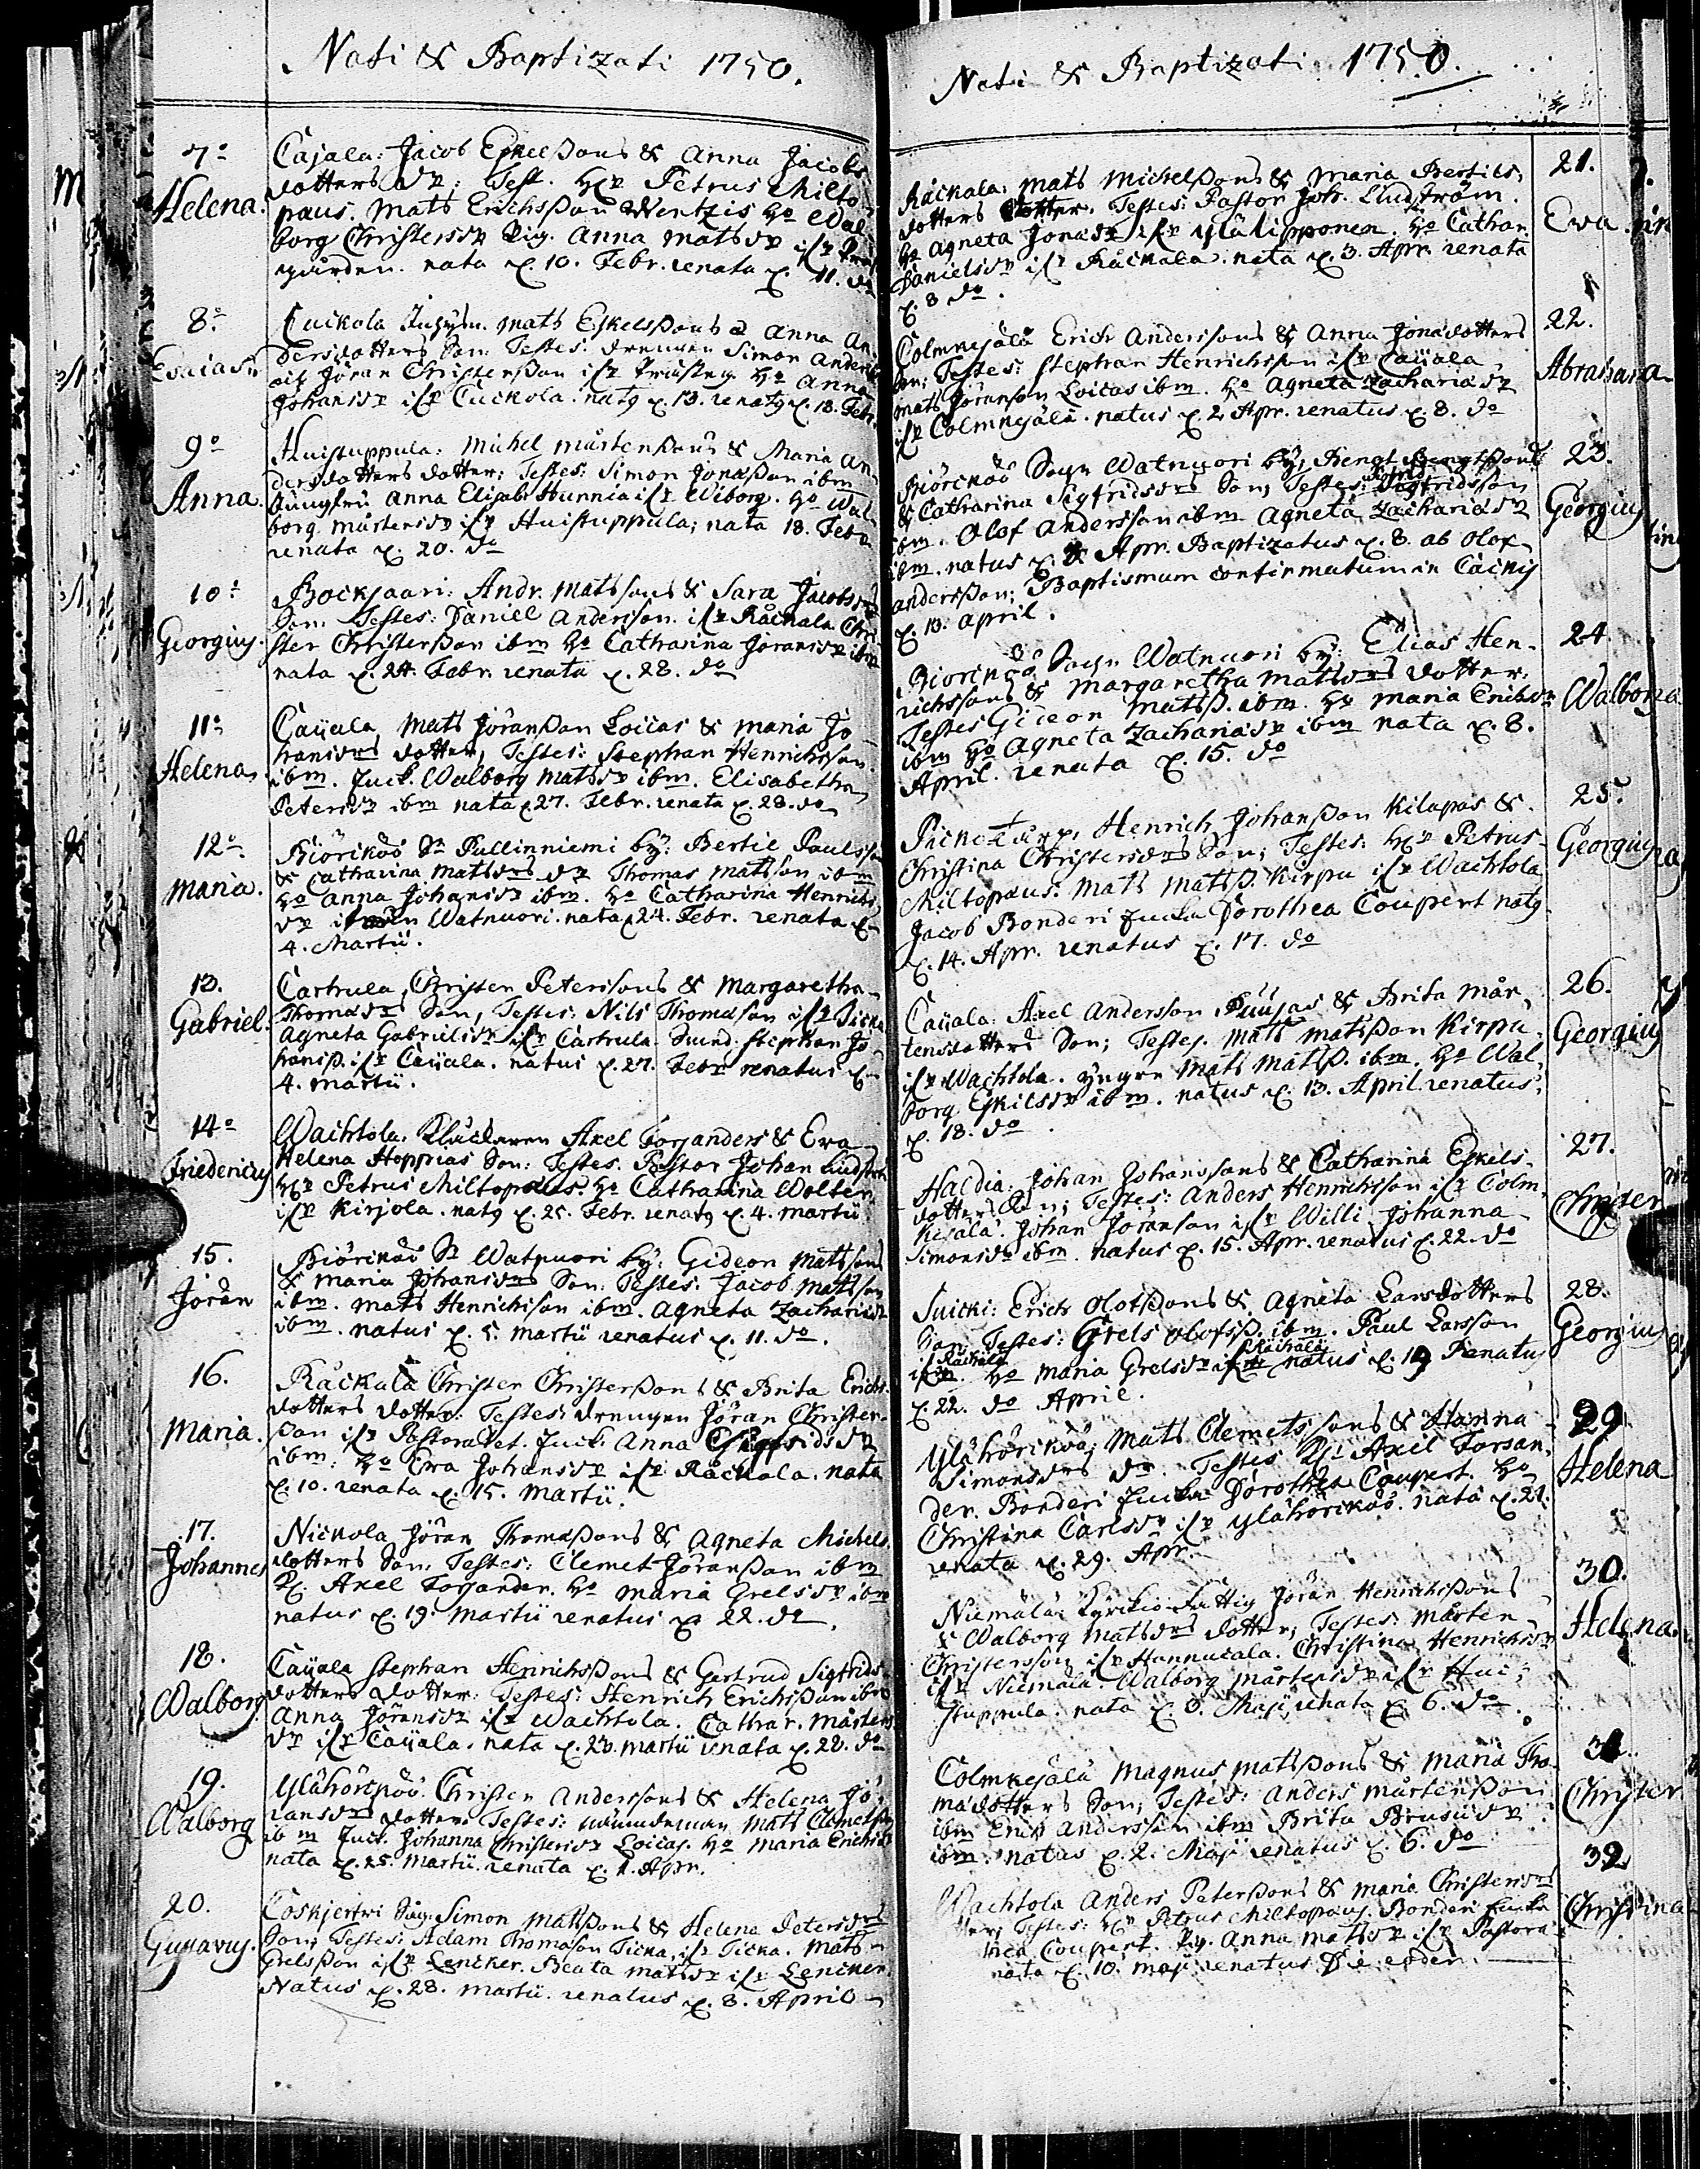 Nati & Baptizati 1750.
7o
Helena.
Cajala: Jacob Eskelssons & Anna Jacobs
dotters dr: Test. Hr Petrus Milto-
paus. Mats Erichsson Wentzis Ho Wal
borg Christersdr Pig. Anna Matsdr
gården. nata d. 10. Febr. renata d. 11. do
8o
Esaias
Cuckola Mats Eskelssons & Anna An
dersdotters Son. Testes: drengen Simon Anders
Jöran Christersson ifr Ho Anna
Johansdr ifr Cuckola. nat9 d. 13. renat9 d. 18. Febr.
9o
Anna.
Huistuppula: Michel Mårtenssons & Maria An
dersdotters dotter; Testes: Simon Jonasson ibm
Jungfru Anna Elisab. Hunnia ifr Wiborg. Ho Wal
borg Mårtensdr ifr Huistuppula; nata 18. Febr
renata d. 20. do
10:
Georgius.
Rockjaari: Andr. Matssons & Sara Jacobsdrs
Son. Testes: Daniel Andersson ifr Råckala Chri
ster Christersson ibm Ho Catharina Jöransdr ibm
nata d. 24. Febr. renata d. 28. do
11:
Helena,
Caÿala, Mats Jöransson Loicas & Maria Jo
hansdrs dotter, Testes: Stephan Henrichsson
ibm. Juck. Walborg Matsdr ibm. Elisabetha
Petersdr ibm nata d. 27. Febr. renata d. 28. do
12o
Maria.
Biörcköö Sn Pullinniemi by: Bertil Paulsson
& Catharina Matsdrs dr Thomas Matsson ibm
Ho Anna Johansdr ibm. Ho Catharina Henrichs
dr Watnuori. nata d. 24. Febr. renata d.
4. Martii.
13.
Gabriel.
Cartrula, Christer Peterssons & Margaretha
Thomædrs Son, Testes: Nils Thomasson ifr Ticka
Agneta Gabrielsdr ifr Cartrula Stephan Jo
hanss. ifr Caÿala. natus d. 27. Febr renatus d.
4. Martii.
14o
Friedericus
Wachtola. Klåckaren Axel Forsanders & Eva
Helena Hoppias Son: Testes. Pastor Johan Ludström
Hr Petrus Miltopæus. Ho Catharina Wolter
ifr Kirjola. nat9 d. 25. Febr. renat9 d. 4. Martii
15.
Jöran
Biörcköö Sn Watnuori by: Gideon Matssons
& Maria Johansdrs Son. Testes: Jacob Matsson
ibm. Mats Henrichsson ibm. Agneta Zachariædr
ibm. natus d. 5. Martii renatus d. 11. do.
16.
Maria.
Råckala Christer Christerssons & Brita Erichs
dotters dotter: Testes: drengen Jöran Christer
son ifr Pastoratet. Juck: Anna Sigfridsdr
ibm: Ho Eva Johansdr ifr Råckala. nata
d. 10. renata d. 15. Martii.
17.
Johannes
Nickola Jöran Thomassons & Agneta Michels
dotters Son. Testes: Clemet Jöransson ibm
Kl: Axel Forsander. Ho Maria Grelsdr ibm
natus d. 19. Martii renatus d. 22. do.
18.
Walborg
Caÿala Stephan Henrichssons & Gertrud Sigfrids
dotters dotter: Testes: Henrich Erichsson ibm
Anna Jöransdr ifr Wachtola. Cathar. Mårtens
dr ifr Caÿala. nata d. 20. Martii renata d. 22. do
19.
Walborg
Ylähörcköö: Christer Anderssons & Helena Jö
ransdrs dotter. Testes: Nämndeman Mats Clemetsson
ibm Juck. Johanna Christersdr Loicas. Ho Maria Erichsdr
nata d. 25. Martii. renata d. 1. Apr.
20.
Gustavus.
Coskjerfwi Simon Matssons & Helena Petersdrs
Son; Testes: Adam Thomasson Ticka, ifr Ticka. Mats
Grelsson ifr Lencker. Beata Matsdr ifr Lencker
Natus d. 28. Martii. renatus d. 8. April
Nati & Baptizati 1750.
Råckala: Mats Michelssons & Maria Bertils
dotters dotter. Testes: Pastor Joh. Ludström.
Ho Agneta Jonædr ifr Ylälipponen. Ho Cathar.
Danielsdr ifr Råckala. nata d. 3. Apr. renata
d. 8 do.
21.
Eva
Colmkesälä Erich Anderssons & Anna Jonædotters
Son: Testes: Stephan Henrichsson ifr Caÿala
Mats Jöransson Loicas ibm. Ho Agneta Zachariædr
ifr Colmkesälä. natus d. 2 Apr. renatus d. 8. do
22.
Abraham
Biörcköö Sogn Watnuori by, Bengt Bengtssons
& Catharina Sigfridsdrs Son; Testes: Sigfridsson
ibm. Olof Andersson ibm Agneta Zachariædr
ibm. natus d. Apr. Baptizatus d. 8. ab Olof
Andersson; Baptismum confirmatum in
d. 13. April.
23.
Georgius
Biörcköö Sogn Watnuori by: Elias Hen-
richssons & Margaretha Matsdrs dotter:
Testes Gideon Matss. ibm. Ho Maria Erichsdr
ibm Ho Agneta Zachariædr ibm nata d. 8.
April. renata d. 15. do
24.
Walborg
Henrich Johansson Kilapas &
Christina Christersdrs Son; Testes: Hr Petrus
Miltopæus: Mats Matss. Kirpu ifr Wachtola
Jacob Bonderi Dorothea Coupert nat9
d. 14. Apr. renatus d. 17. do
25.
Georgius
Caÿala: Axel Andersson Puusas & Brita Mår
tensdotters Son; Testes. Mats Matsson Kirpu
ifr Wachtola. Yngre Mats Matss. ibm. Ho Wal
borg Eskilsdr ibm. natus d. 13. April renatus
d. 18. do.
26.
Georgius
Haldia. Johan Johanssons & Catharina Eskels
dotters Son; Testes: Anders Henrichsson ifr Colm
kesälä. Johan Jöransson ifr Willi Johanna
Simonsdr ibm. natus d. 15. Apr. renatus d. 22. do
27.
Christer
Suicki: Erich Olofssons & Agneta Larsdotters
Son, Testes: Grels Olofss. ibm. Paul Larsson
ifr Råckala. Ho Maria Grelsdr ifr Råckala natus d. 19 Renatus
d. 22. do April.
28.
Georgius
Ylähörcköö, Mats Clemetssons & Hanna
Simonsdrs dr. Testes Kl: Axel Forsan
der. Bonderi Dorothea Coupert. Ho
Christina Carlsdr ifr Ylähörcköö. nata d. 21.
renata d. 29. Apr.
29
Helena
Niemälä Kyrckio Fattig Jöran Henrichssons
& Walborg Matsdrs dotter, Testes: Mårten
Christersson ifr Hannucala. Christina Henrichsdr
ifr Niemälä. Walborg Mårtensdr ifr Hui-
stuppula. nata d. 6. Maji, renata d. 6. do.
30.
Helena.
Colmkesälä Magnus Matssons & Maria Tho
mædotters Son; Testes: Anders Mårtensson
ibm Erich Andersson ibm Brita Brusiidr
ibm. natus d. 2. Maji renatus d. 6. do
31.
Christer
Wachtola Anders Peterssons & Maria Christersdrs
Testes: Hr Petrus Miltopæus. Bonderi
thea Coupert. Pig. Anna Matsdr ifr Pastora
nata d. 10. Maji renatus Die eoden.
32
Christina